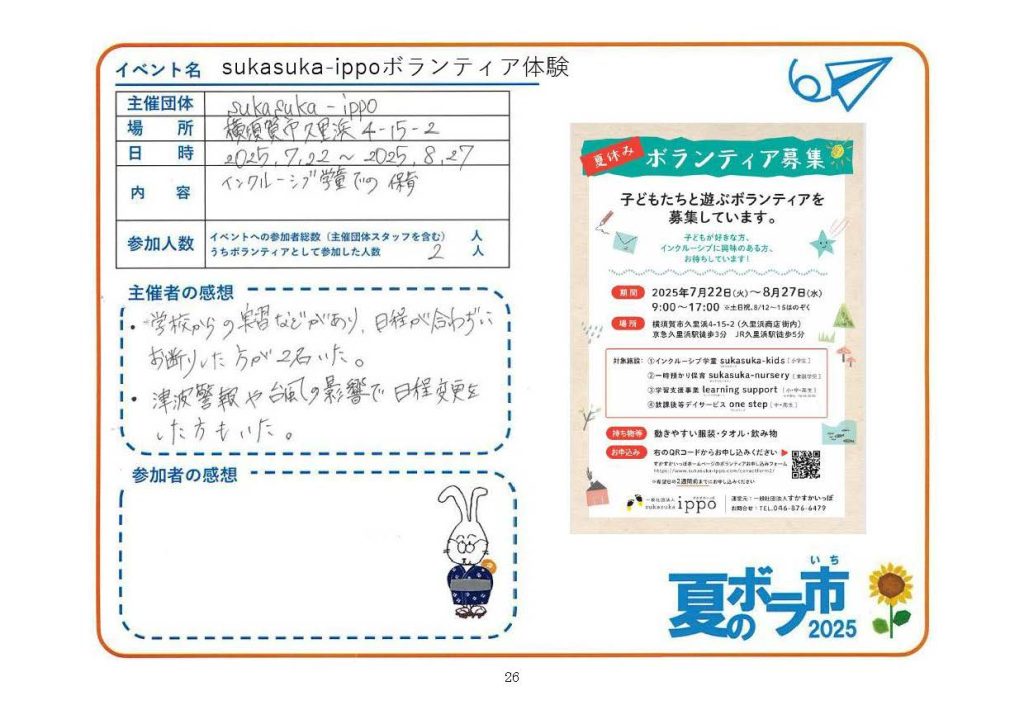 イベント名 sukasuka-ippoボランティア体験
主催団体 sukasuka-ippo
場　所 横須賀市久里浜 4-15-2
日　時 2025,7,22 ～ 2025,8,27
内　容 インクルーシブ学童での 保育
参加人数 イベントへの参加者総数（主催団体スタッフを含む） 人
うちボランティアとして参加した人数 2 人
主催者の感想
・学校からの実習などがあり、日程が合わずに
お断りした方が2名いた。
・津波警報や台風の影響で日程変更を
した方もいた。
参加者の感想
夏休み ボランティア募集
子どもたちと遊ぶボランティアを
募集しています。
子どもが好きな方、
インクルーシブに興味のある方、
お待ちしています！
期間 2025年7月22日(火)～8月27日(水)
9:00～17:00 ※土日祝、8/12～15はのぞく
場所 横須賀市久里浜4-15-2（久里浜商店街内）
京急久里浜駅徒歩3分　JR久里浜駅徒歩5分
対象施設: ①インクルーシブ学童 sukasuka-kids [小学生]
②一時預かり保育 sukasuka-nursery [未就学児]
③学習支援事業 learning support [小・中・高生]
④放課後等デイサービス one step [中・高生]
持ち物等 動きやすい服装・タオル・飲み物
お申込み 右のQRコードからお申し込みください ▶
すかすかいっぽホームページのボランティアお申し込みフォーム
https://www.sukasuka-ippo.com/contactform2/
※希望日の2週間前までにお申し込みください
一般社団法人 sukasuka ippo
運営元：一般社団法人すかすかいっぽ
お問合せ：TEL.046-876-6479
夏のボラ市 いち 2025
26